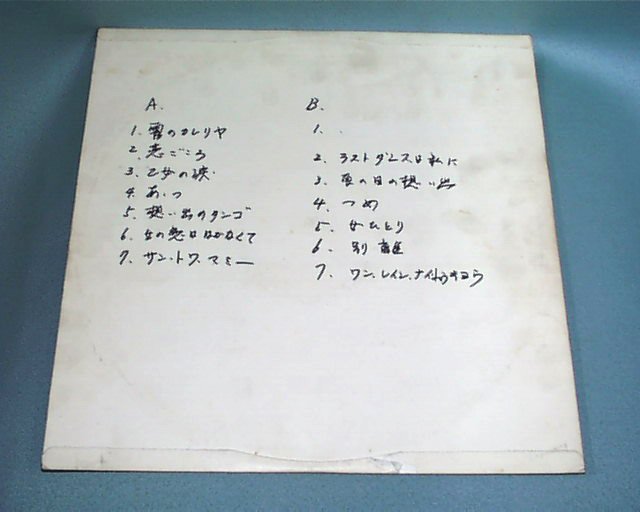 A.
1. 霧のカレリヤ
2. 恋ごころ
3. 乙女の涙
4. あいつ
5. 想い出のタンゴ
6. 女の恋ははかなくて
7. サン・トワ・マミー
B.
1.
2. ラストダンスは私に
3. 夏の日の想い出
4. つめ
5. 女ひとり
6. 別離
7. ワン、レイニ、ナイト